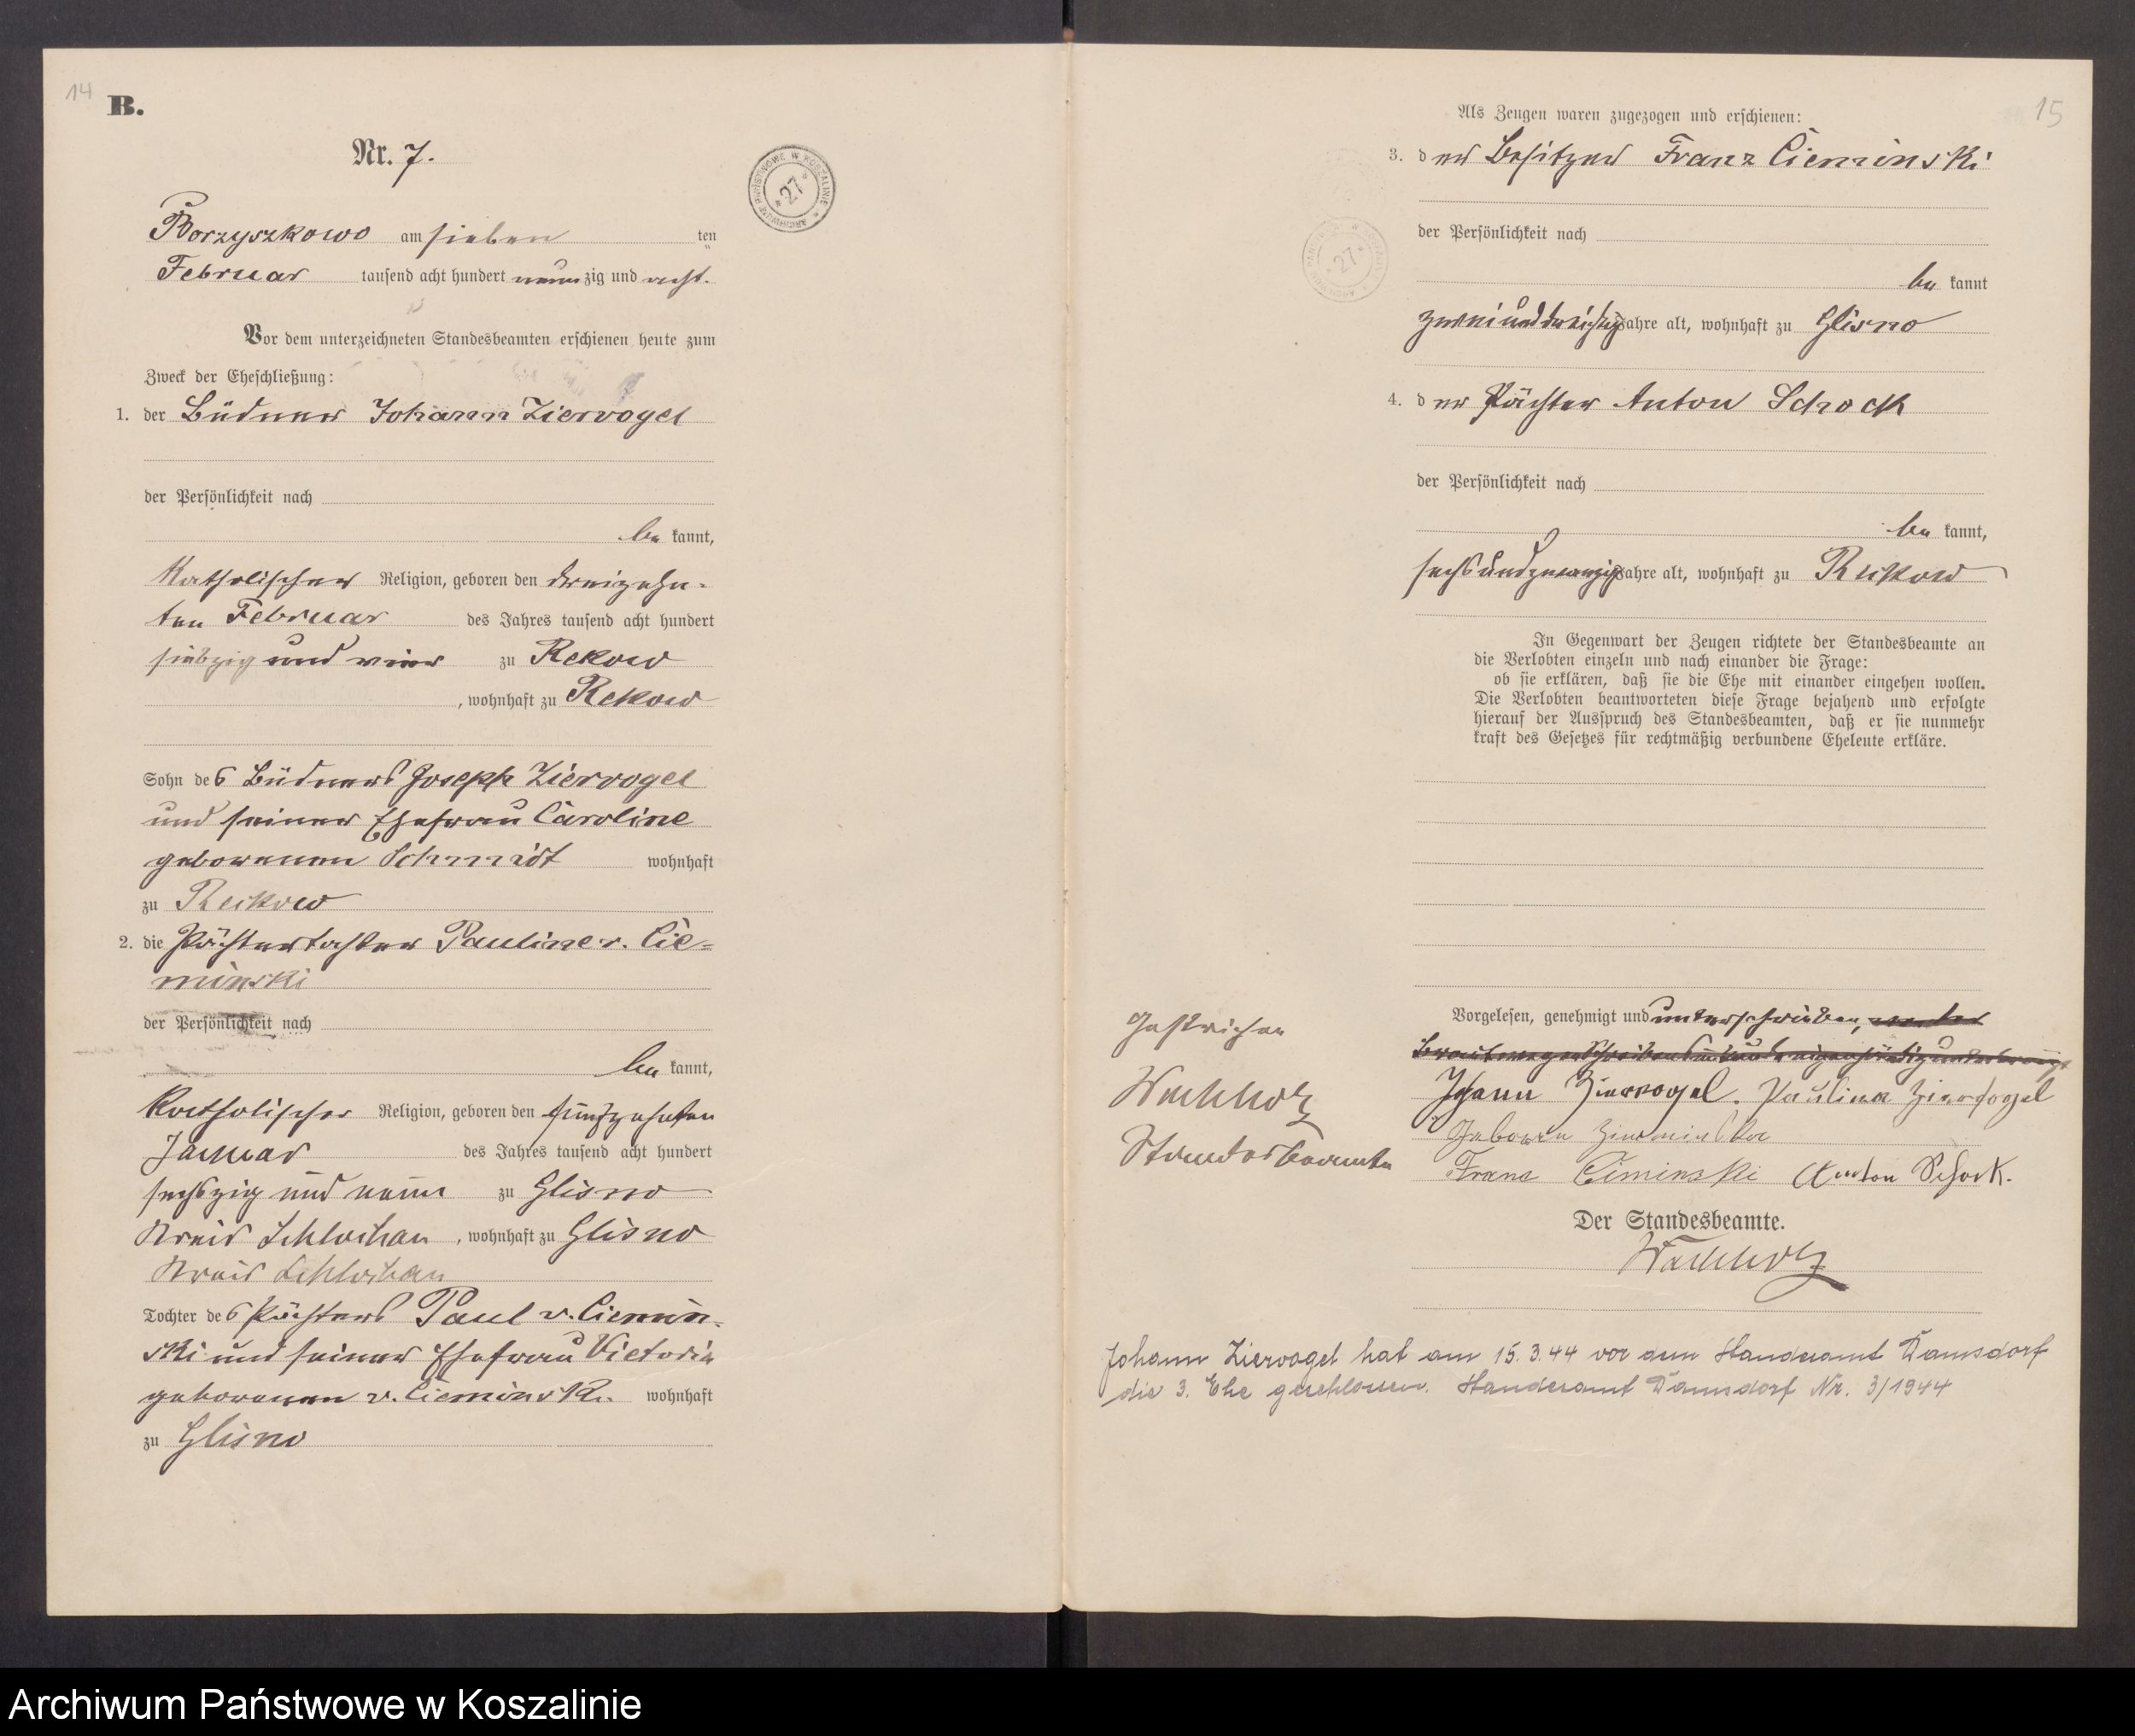 14
B.
Nr. 7.
ARCHIWUM PAŃSTWOWE W KOSZALINIE * 27 *
Borzyszkowo am sieben ten
Februar tausend acht hundert neunzig und acht.
Vor dem unterzeichneten Standesbeamten erschienen heute zum
Zweck der Eheschließung:
1. der Büdner Johann Ziervogel
der Persönlichkeit nach
be kannt,
Katholischer Religion, geboren den dreizehn-
ten Februar des Jahres tausend acht hundert
siebzig und vier zu Rekow
, wohnhaft zu Rekow
Sohn des Büdners Joseph Ziervogel
und seiner Ehefrau Caroline
geborenen Schmidt wohnhaft
zu Rekow
2. die Pächtertochter Pauline v. Cie-
minski
der Persönlichkeit nach
be kannt,
Katholischer Religion, geboren den fünfzehnten
Januar des Jahres tausend acht hundert
sechszig und neun zu Glisno
Kreis Schlochau, wohnhaft zu Glisno
Kreis Schlochau
Tochter des Pächters Paul v. Ciemin-
ski und seiner Ehefrau Victoria
geborenen v. Cieminski wohnhaft
zu Glisno
15
Als Zeugen waren zugezogen und erschienen:
3. der Besitzer Franz Cieminski
der Persönlichkeit nach
be kannt
zweiunddreißig Jahre alt, wohnhaft zu Glisno
4. der Pächter Anton Schock
der Persönlichkeit nach
be kannt,
sechsundzwanzig Jahre alt, wohnhaft zu Rekow
In Gegenwart der Zeugen richtete der Standesbeamte an
die Verlobten einzeln und nach einander die Frage:
ob sie erklären, daß sie die Ehe mit einander eingehen wollen.
Die Verlobten beantworteten diese Frage bejahend und erfolgte
hierauf der Ausspruch des Standesbeamten, daß er sie nunmehr
kraft des Gesetzes für rechtmäßig verbundene Eheleute erkläre.
Vorgelesen, genehmigt und unterschrieben,
Gestrichen
Wachholz
Standesbeamte
Johann Ziervogel. Paulina Ziervogel
Geboren
Franz Ciminski Anton Schock.
Der Standesbeamte.
Wachholz
Johann Ziervogel hat am 15.3.44 vor dem Standesamt Damsdorf
die 3. Ehe geschlossen. Standesamt Damsdorf Nr. 3/1944
Archiwum Państwowe w Koszalinie